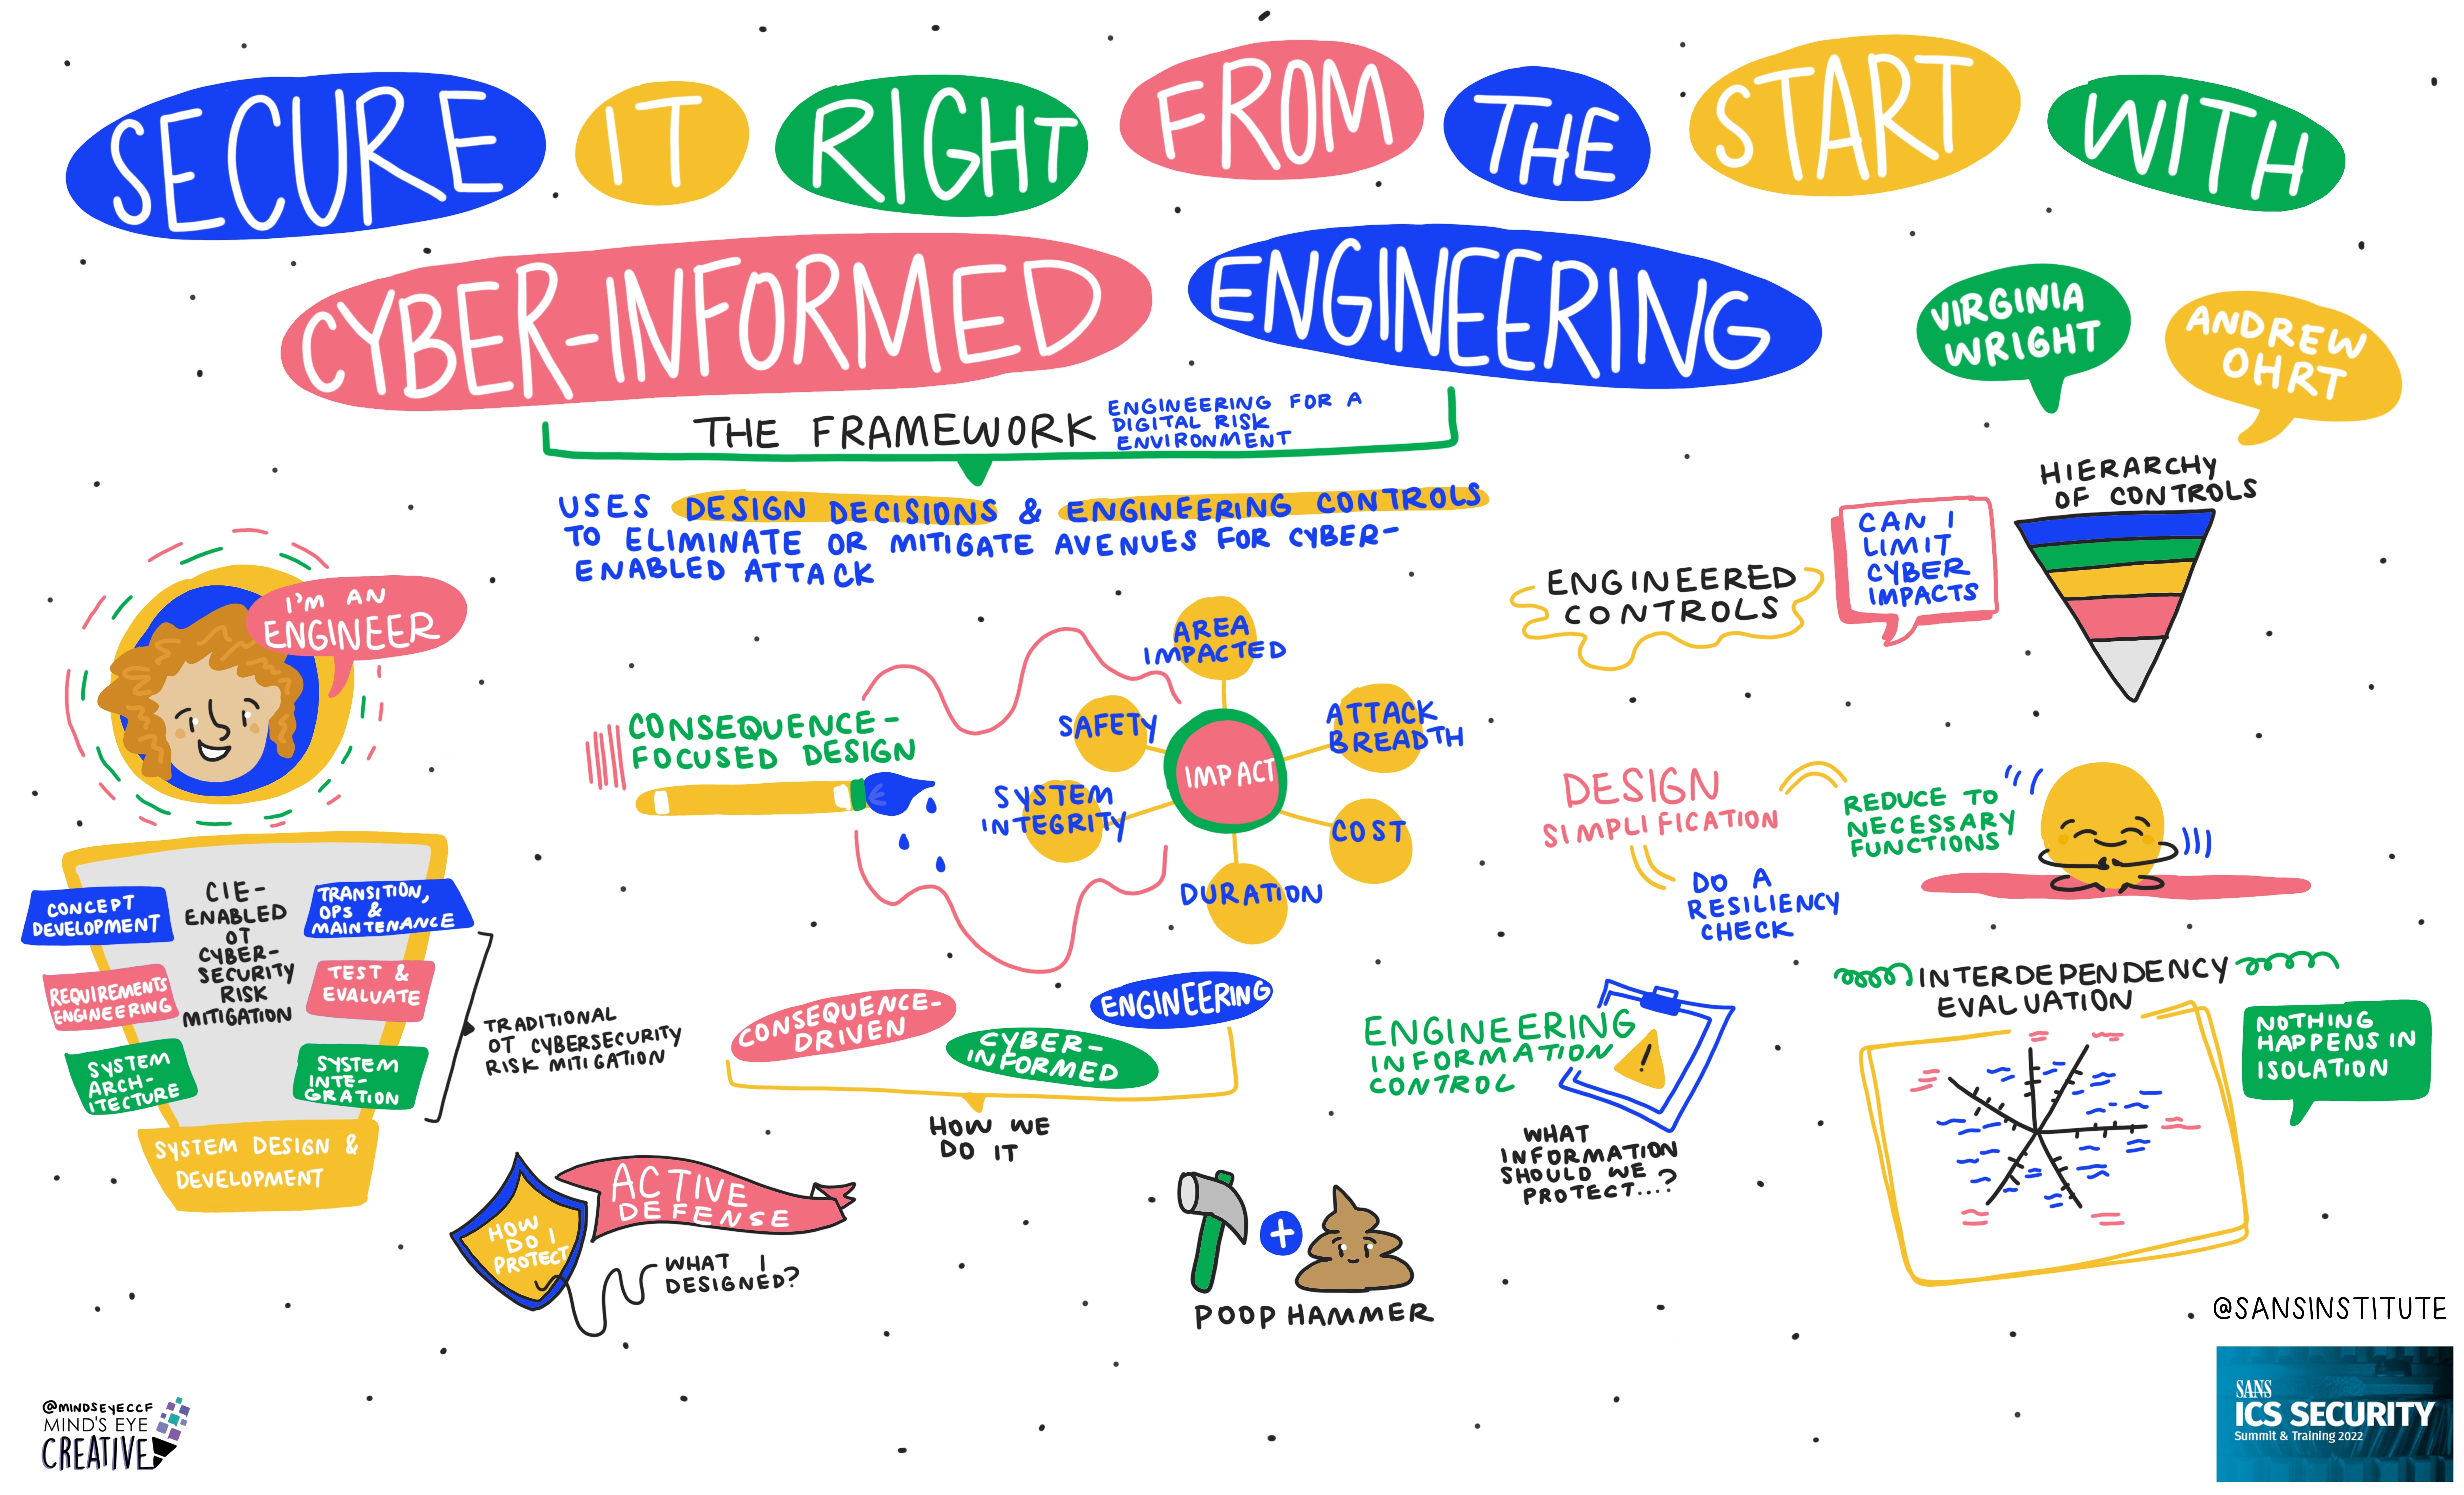 SECURE IT RIGHT FROM THE START WITH
CYBER-INFORMED ENGINEERING
VIRGINIA
WRIGHT
ANDREW
OHRT
THE FRAMEWORK
ENGINEERING FOR A
DIGITAL RISK
ENVIRONMENT
USES DESIGN DECISIONS & ENGINEERING CONTROLS
TO ELIMINATE OR MITIGATE AVENUES FOR CYBER-
ENABLED ATTACK
I'M AN
ENGINEER
CIE-
ENABLED
OT
CYBER-
SECURITY
RISK
MITIGATION
CONCEPT
DEVELOPMENT
REQUIREMENTS
ENGINEERING
SYSTEM
ARCH-
ITECTURE
SYSTEM DESIGN &
DEVELOPMENT
SYSTEM
INTE-
GRATION
TEST &
EVALUATE
TRANSITION,
OPS &
MAINTENANCE
TRADITIONAL
OT CYBERSECURITY
RISK MITIGATION
CONSEQUENCE-
FOCUSED DESIGN
IMPACT
AREA
IMPACTED
ATTACK
BREADTH
COST
DURATION
SYSTEM
INTEGRITY
SAFETY
CONSEQUENCE-
DRIVEN
CYBER-
INFORMED
ENGINEERING
HOW WE
DO IT
HOW
DO I
PROTECT
ACTIVE
DEFENSE
WHAT I
DESIGNED?
POOP HAMMER
ENGINEERED
CONTROLS
CAN I
LIMIT
CYBER
IMPACTS
HIERARCHY
OF CONTROLS
DESIGN
SIMPLIFICATION
REDUCE TO
NECESSARY
FUNCTIONS
DO A
RESILIENCY
CHECK
ENGINEERING
INFORMATION
CONTROL
!
WHAT
INFORMATION
SHOULD WE
PROTECT....?
INTERDEPENDENCY
EVALUATION
NOTHING
HAPPENS IN
ISOLATION
@SANSINSTITUTE
SANS
ICS SECURITY
Summit & Training 2022
@MINDSEYECCF
MIND'S EYE
CREATIVE